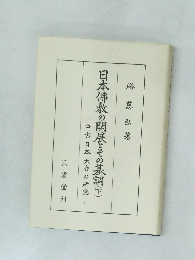 硲慈弘著
日本佛教の開展とその基調(下)
中古日本天台の研究
三省堂刊